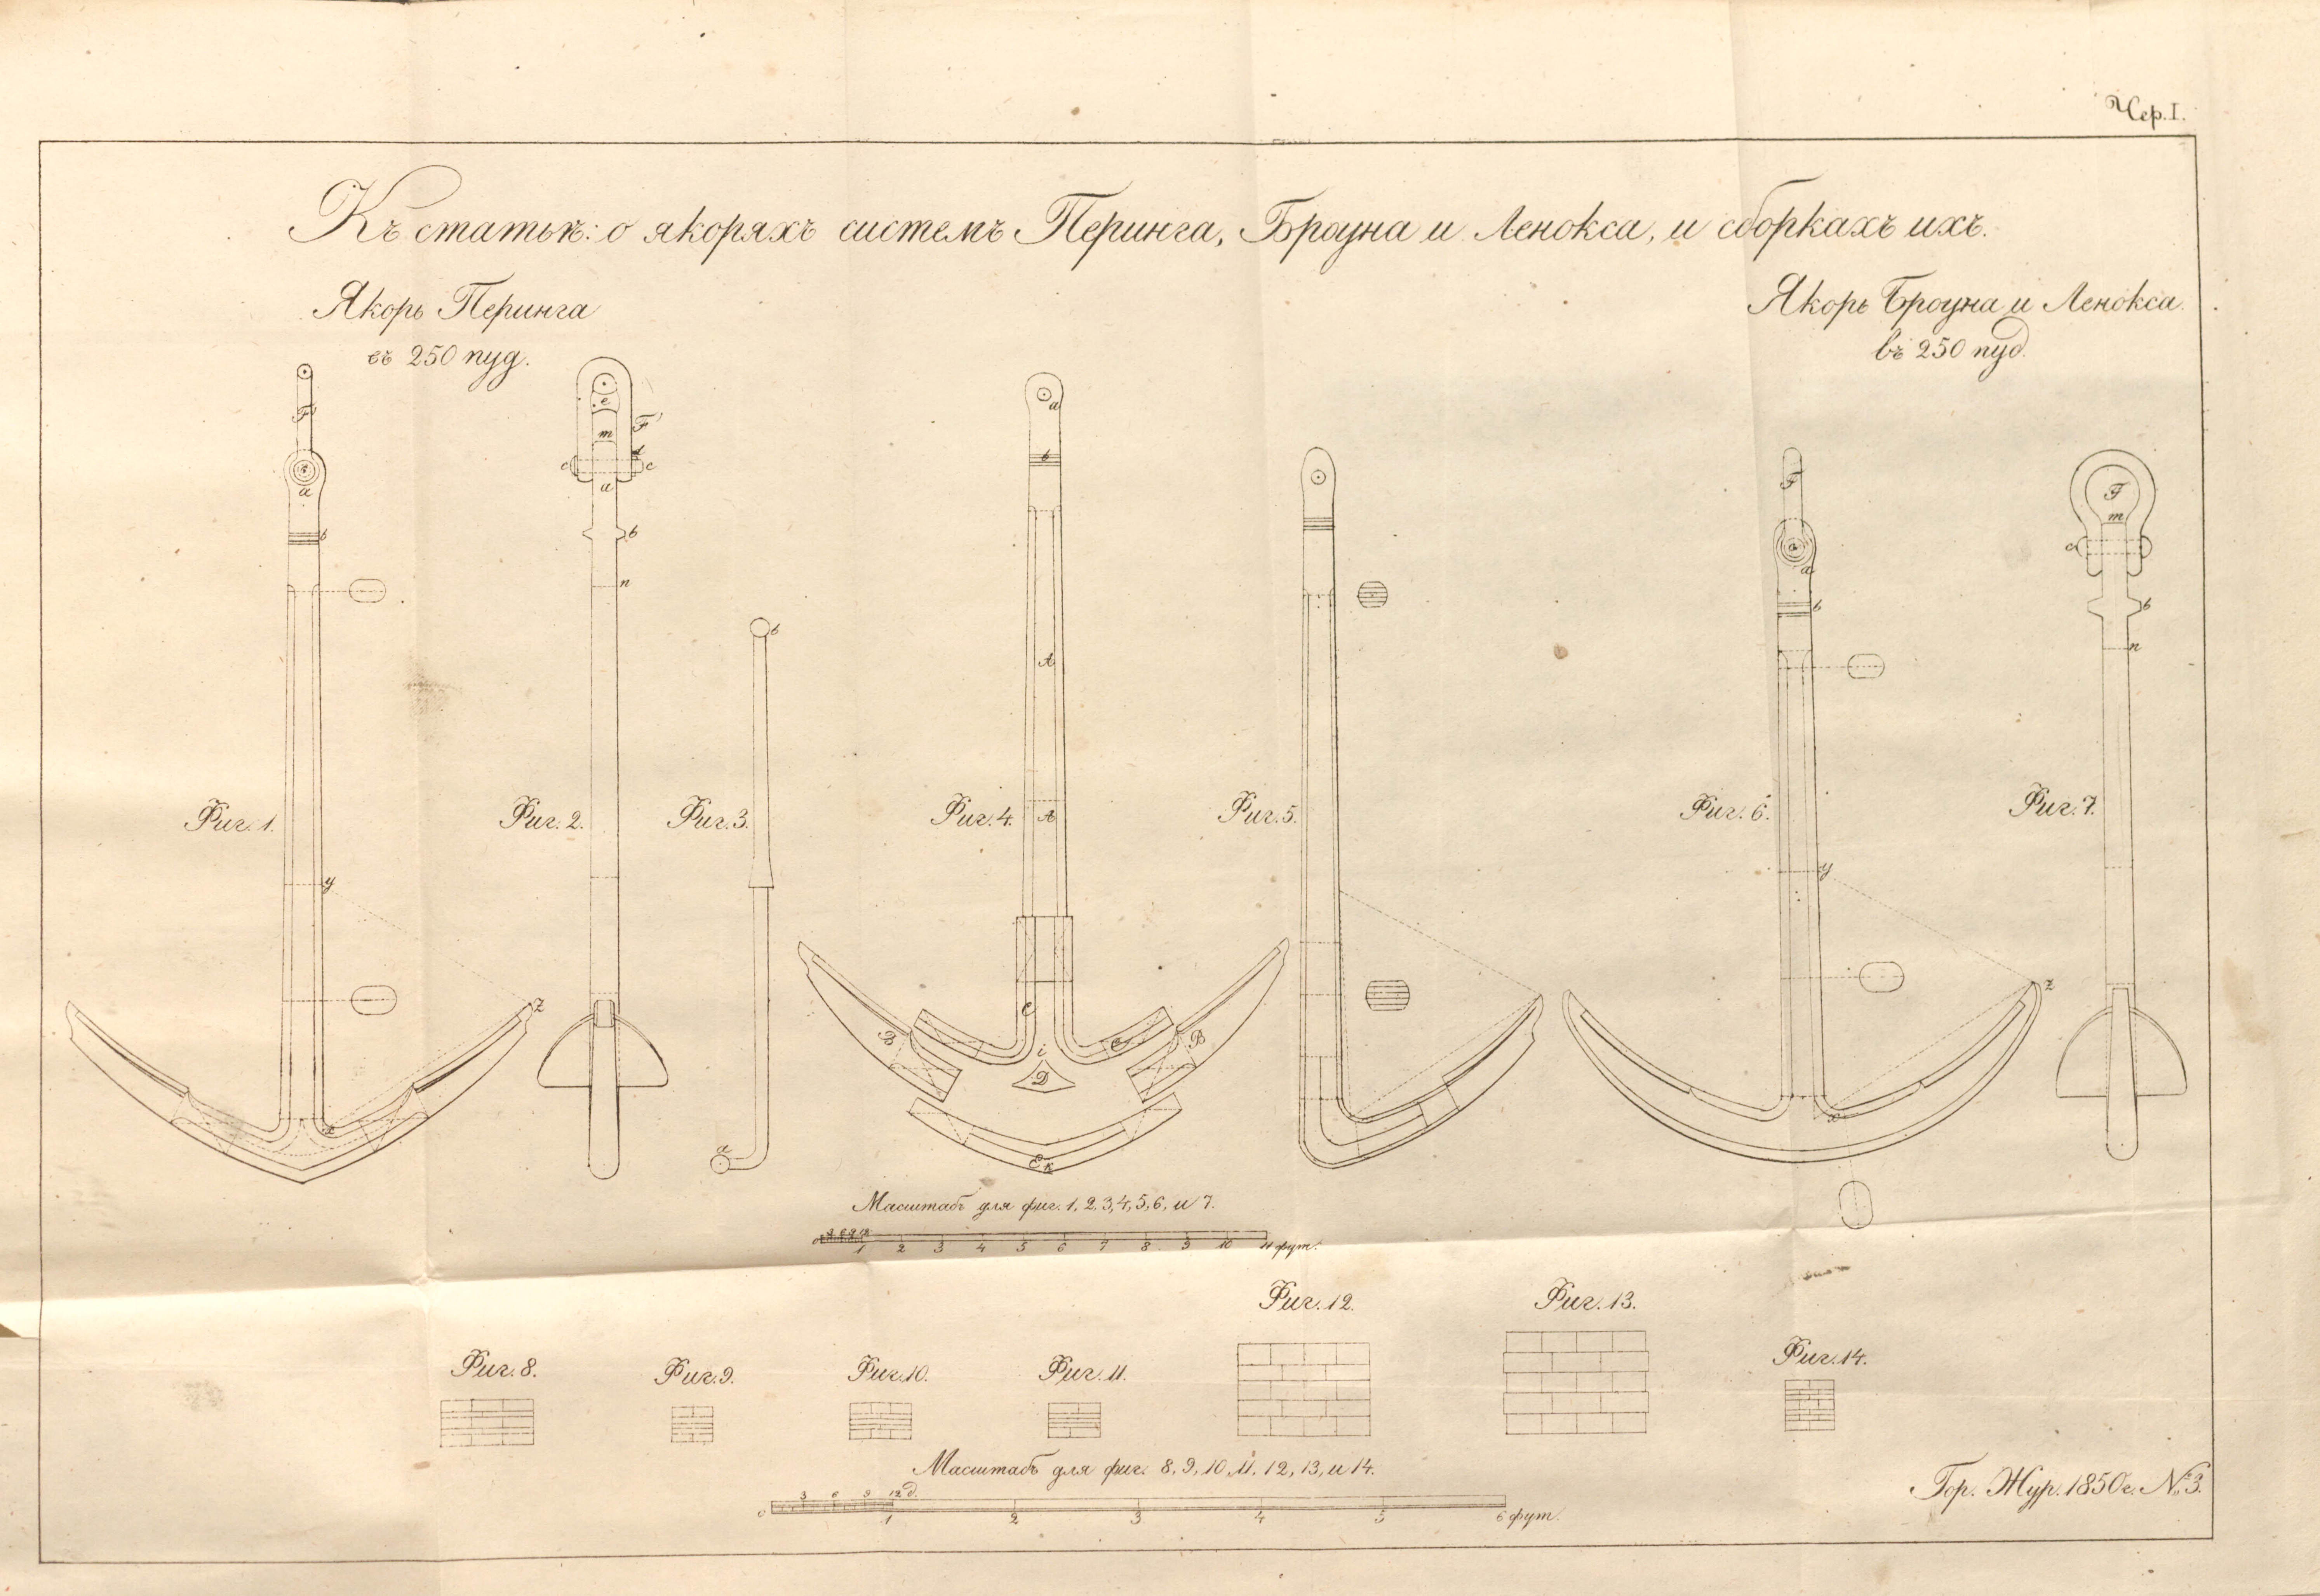 Чер. I.
Къ статьѣ: о якоряхъ системъ Перинга, Броуна и Ленокса, и сборкахъ ихъ.
Якорь Перинга
въ 250 пуд.
Якорь Броуна и Ленокса
въ 250 пуд.
F
a
b
y
z
x
e
m
F
c
c
a
b
n
b
a
a
b
A
A
C
C
B
B
i
D
E
k
F
a
b
y
z
x
F
m
c
b
n
Фиг. 1.
Фиг. 2.
Фиг. 3.
Фиг. 4.
Фиг. 5.
Фиг. 6.
Фиг. 7.
Масштабъ для фиг. 1, 2, 3, 4, 5, 6, и 7.
0 3 6 9 12
1 2 3 4 5 6 7 8 9 10 11 фут.
Фиг. 12.
Фиг. 13.
Фиг. 8.
Фиг. 9.
Фиг. 10.
Фиг. 11.
Фиг. 14.
Масштабъ для фиг. 8, 9, 10, 11, 12, 13, и 14.
3 6 9 12 д.
0 1 2 3 4 5 6 фут.
Гор. Жур. 1850 г. № 3.